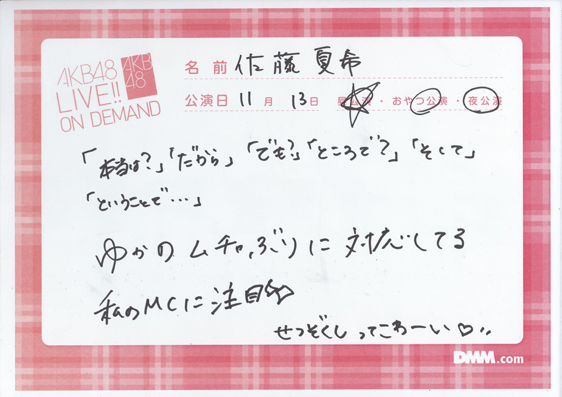 AKB48
LIVE!!
ON DEMAND
AKB
48
名前 佐藤夏希
公演日 11月 13日 昼公演・おやつ公演・夜公演
「本当は?」「だから」「でも?」「ところで?」「そして」
「ということで…」
ゆかのムチャぶりに対応してる
私のMCに注目
せつぞくしってこわーい♡
DMM.com